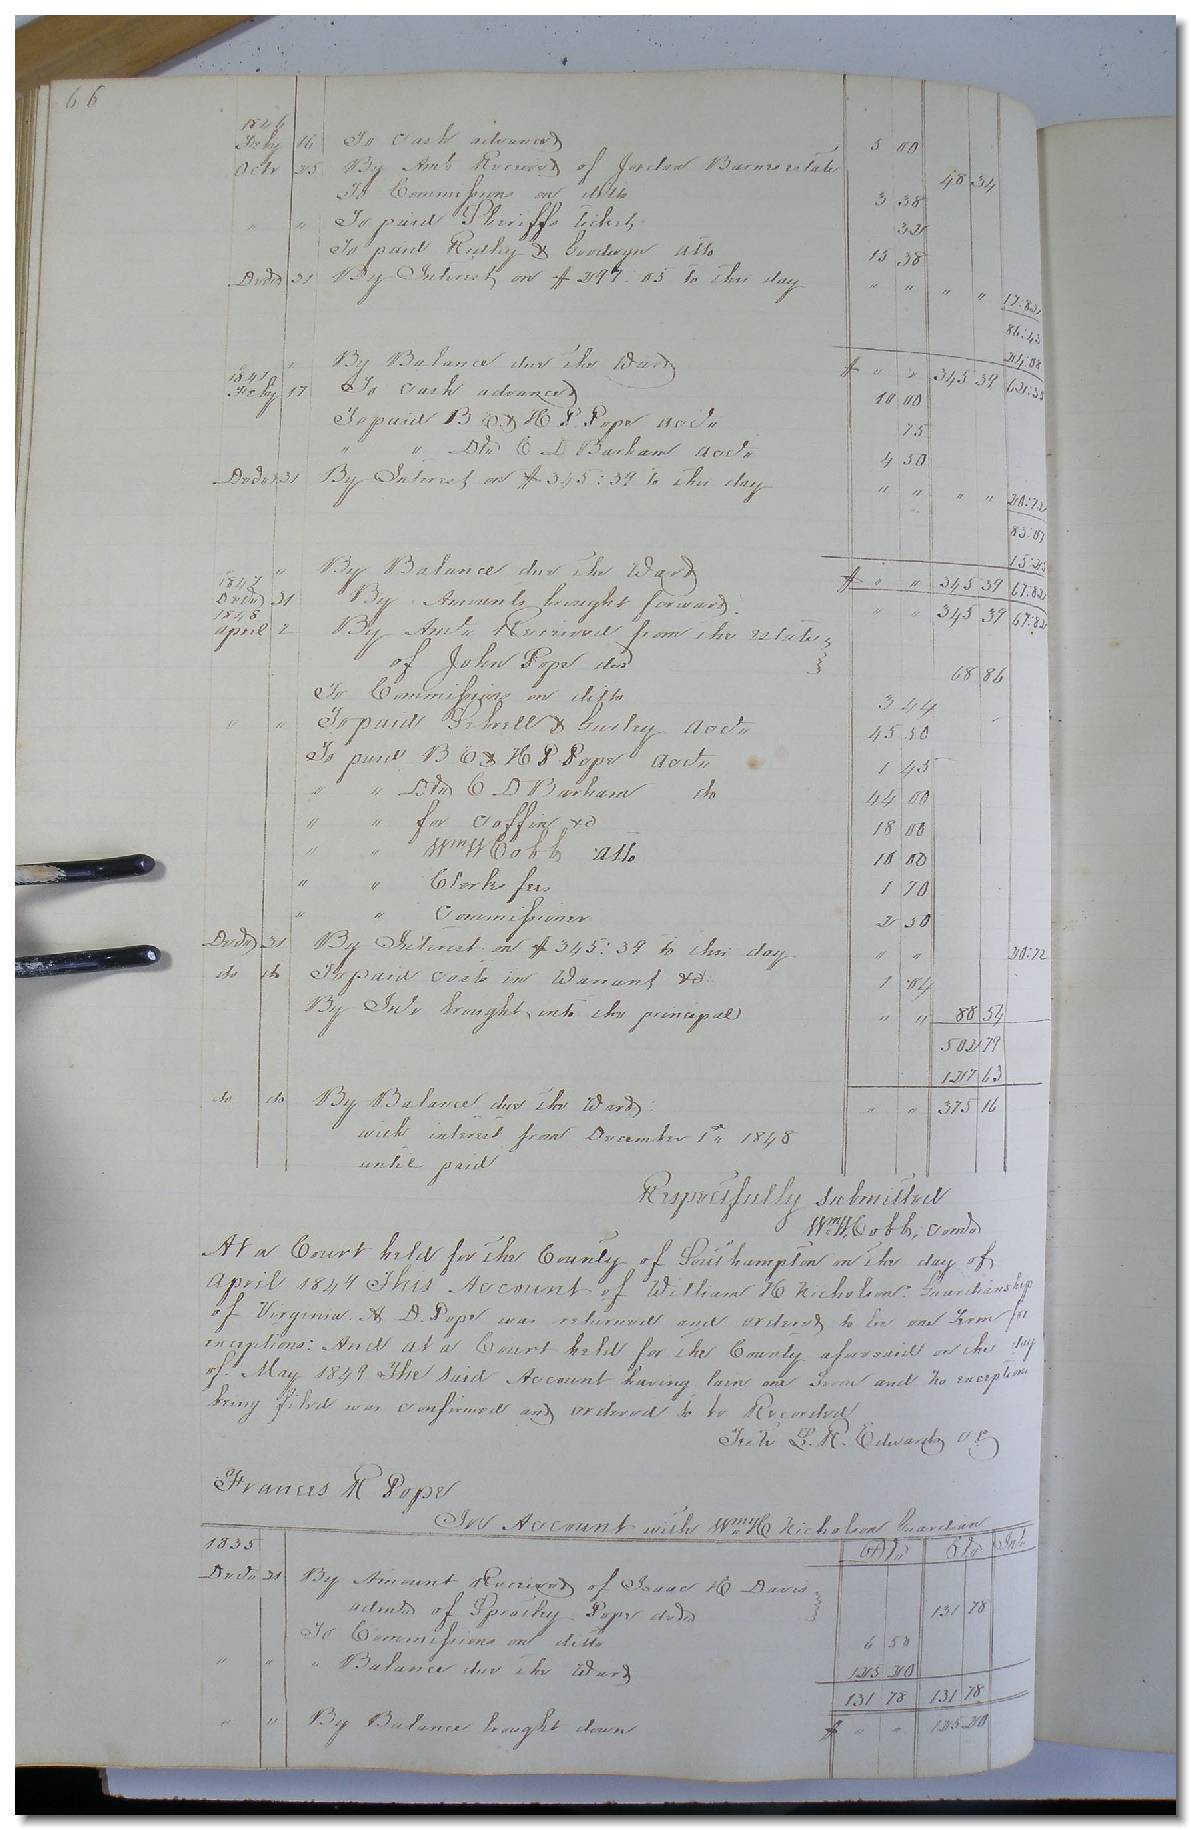 66
1846
Feby 16 To Cash advanced 5 00
Octr 25 By Amt Received of Jordan Barnes estate 48 34
To Commissions on ditto 3 38
" " To paid Sheriffs ticket 
To paid Ridley & Goodwyn Atto 15 38
Decr 31 By Interest on $297.05 to this day " " " " 17:82
86:43
" By Balance due the Ward $ " " 345 39
1847
Feby 17 To Cash advanced 10 00
To paid B & H P Pope acct 75
" " Do C D Barham acct 4 50
Decr 31 By Interest on $345:39 to this day " " " " 20:72
" By Balance due the Ward $ " " 345 39 67:82
1847
Decr 31 By Amounts brought forward " " 345 39 67:82
1848
April 2 By Amt Received from the estate
of John Pope decd 68 86
To Commissions on ditto 3 44
" " To paid & Gurley acct 45 50
To paid B & H P Pope acct 1 45
" " Do C D Barham do 44 00
" " for Coffin &c 18 00
" " Wm W Cobb Atto 10 00
" " Clerks fees 1 70
" " Commissioner 2 50
Decr 31 By Interest on $345:39 to this day " " 20:72
do do To paid Costs in Warrant &c 1 04
By Int brought into the principal " " 88 54
502 79
127 63
do do By Balance due the Ward " " 375 16
with interest from December 1st 1848
until paid
Respectfully Submitted
Wm W Cobb, Comr
At a Court held for the County of Southampton on the day of
April 1849 This Account of William H Nicholson Guardianship
of Virginia A. D. Pope was returned and ordered to lie one Term for
exceptions: And at a Court held for the County aforesaid on the day
of May 1849 The said Account having lain one Term and no exceptions
being filed was confirmed and ordered to be Recorded
Teste L. R. Edwards C C
Frances R Pope
In Account with Wm H Nicholson Guardian
1835 Dr Cr Int
Decr 31 By Amount Received of Isaac H Davis
admr of Pope decd 131 78
To Commissions on ditto 6 58
" " " Balance due the Ward 125 20
131 78 131 78
" " By Balance brought down $ " " 125 20